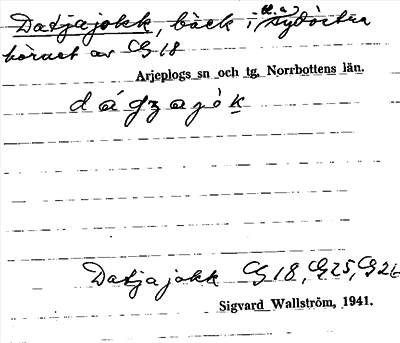 Datjajokk, bäck i bl.a. sydöstra
hörnet av G 18
Arjeplogs sn och tg. Norrbottens län.
d á g z a j ò k
Datjajokk G18, G25, G26
Sigvard Wallström, 1941.